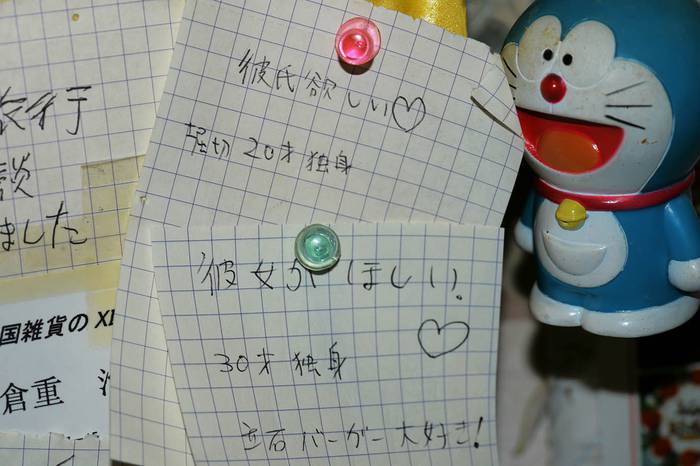 旅行
談
ました
国雑貨の XI
倉重
彼氏欲しい♡
20才 独身
彼女がほしい。
♡
30才 独身
立石バーガー大好き!